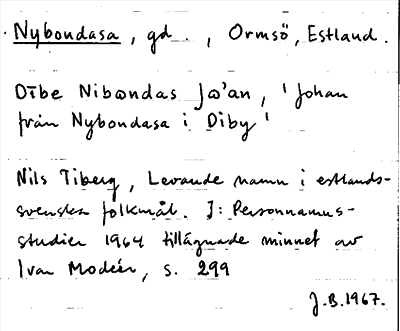 Nybondasa, gd., Ormsö, Estland.
Dībe Nibωndas Jω'an, 'Johan
från Nybondasa i Diby'
Nils Tiberg, Levande namn i estlands-
svenska folkmål. I: Personnamns-
studier 1964 tillägnade minnet av
Ivar Modéer, s. 299
J.B. 1967.